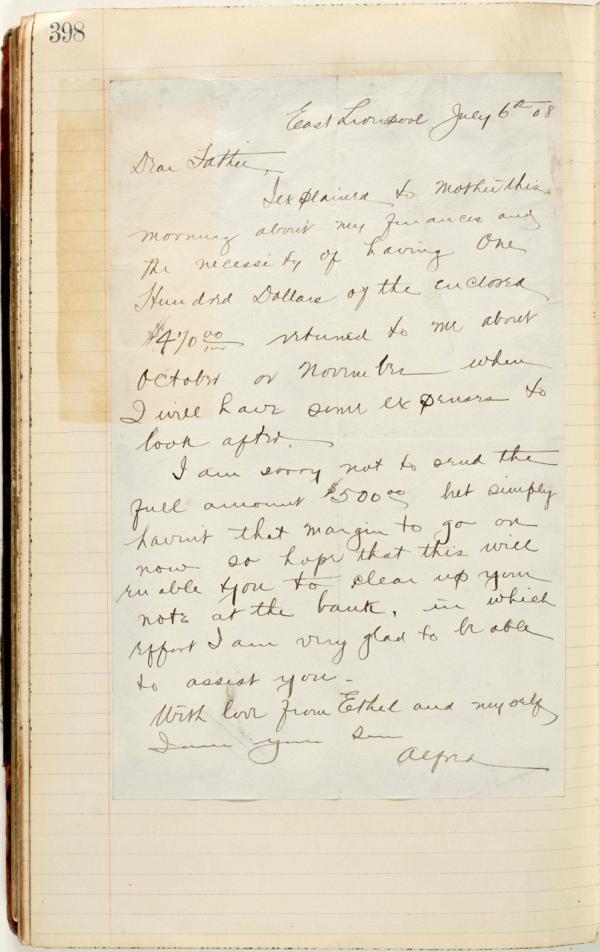 398
East Liverpool July 6th 08
Dear Father,
I explained to mother this
morning about my finances and
the necessity of having One
Hundred Dollars of the enclosed
$470.00 returned to me about
October or November when
I will have some expenses to
look after.
I am sorry not to send the
full amount $500.00 but simply
havint that margin to go on
now so hope that this will
enable you to clear up your
note at the bank, in which
effort I am very glad to be able
to assist you -
With love from Ethel and myself,
I am your son
Alfred